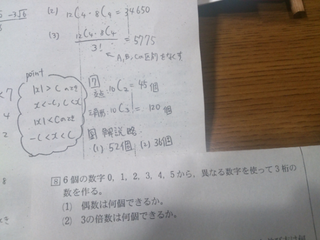 (2) ₁₂C₄・₈C₄ = 34650
(3) ₁₂C₄・₈C₄ / 3! = 5775
A, B, Cの区別をなくす
point
|x|>Cのとき
x<-C, C<x
|x|<Cのとき
-C<x<C
7
₁₀C₂ = 45個
₁₀C₃ = 120個
8 解説略
(1) 52個 (2) 36個
8 6個の数字0, 1, 2, 3, 4, 5から, 異なる数字を使って3桁の
数を作る。
(1) 偶数は何個できるか。
(2) 3の倍数は何個できるか。